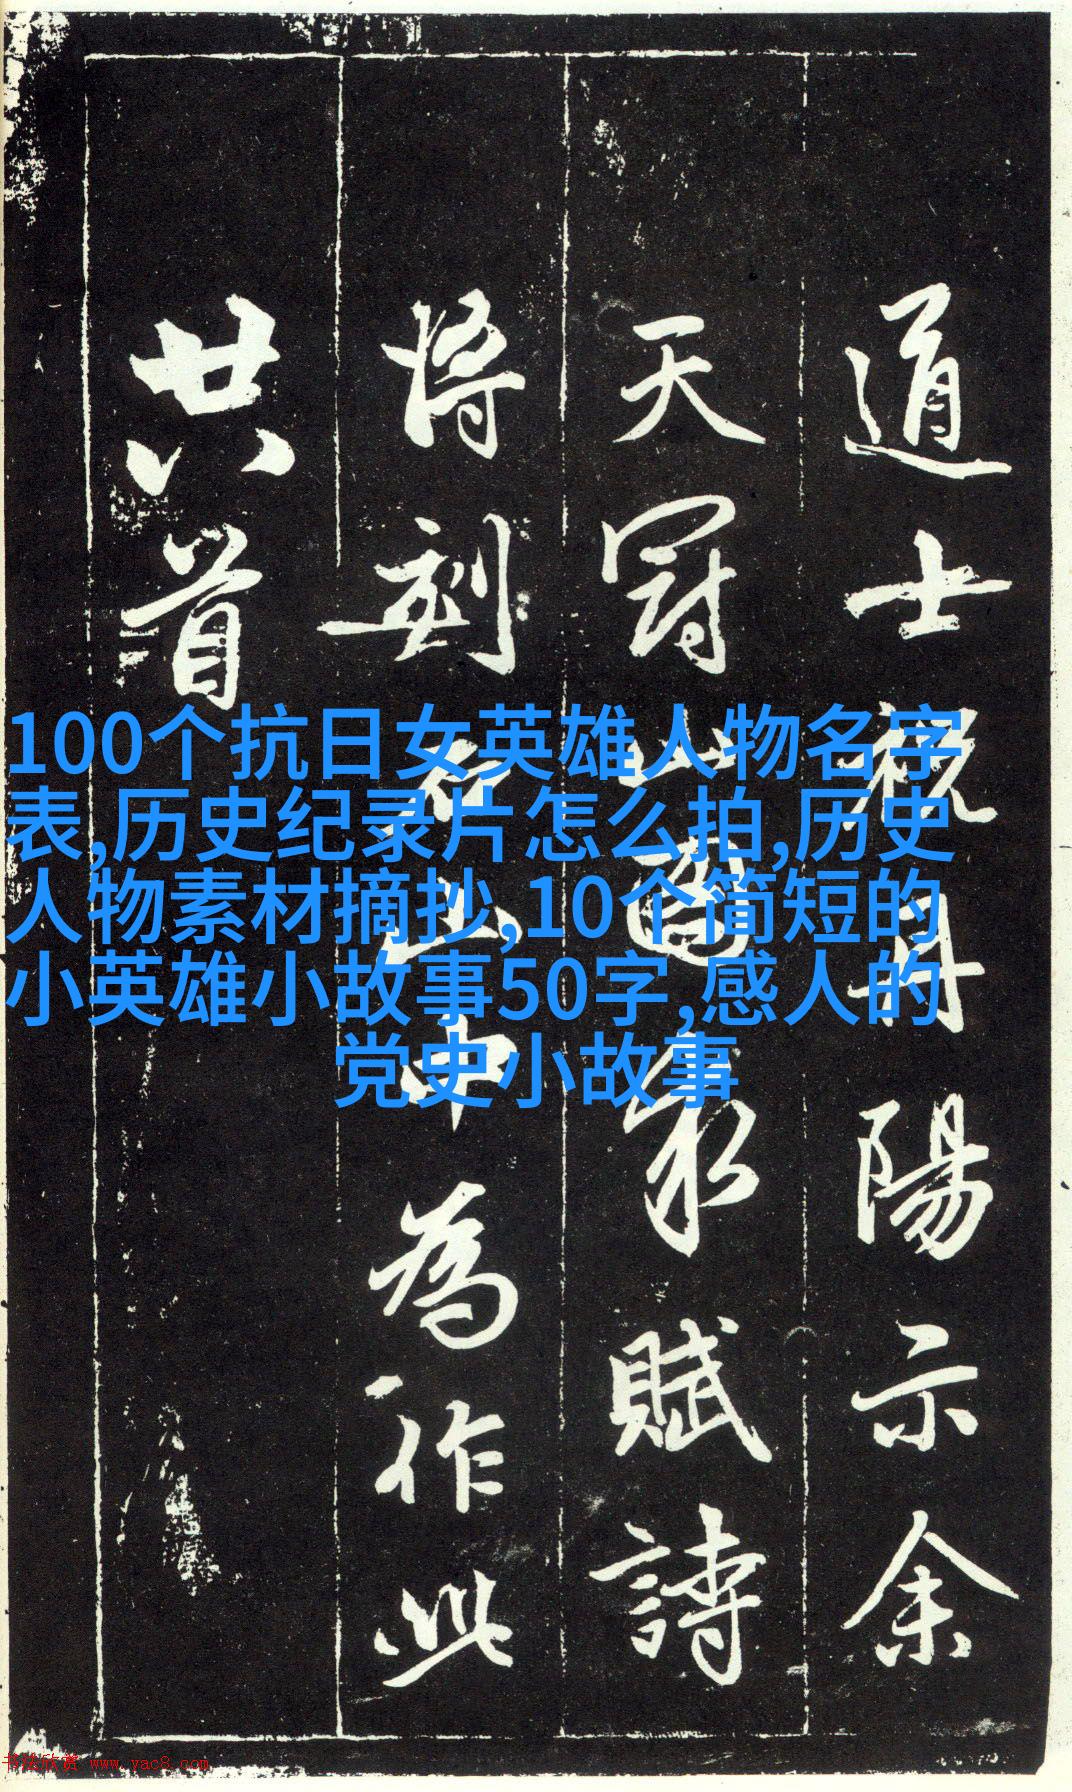 道士祝丹陽示余
天冠山圖求賦詩
將刻石山中為作此
廿八首
100个抗日女英雄人物名字
表,历史纪录片怎么拍,历史
人物素材摘抄,10个简短的
小英雄小故事50字,感人的
党史小故事
书法欣赏 www.yac8.com